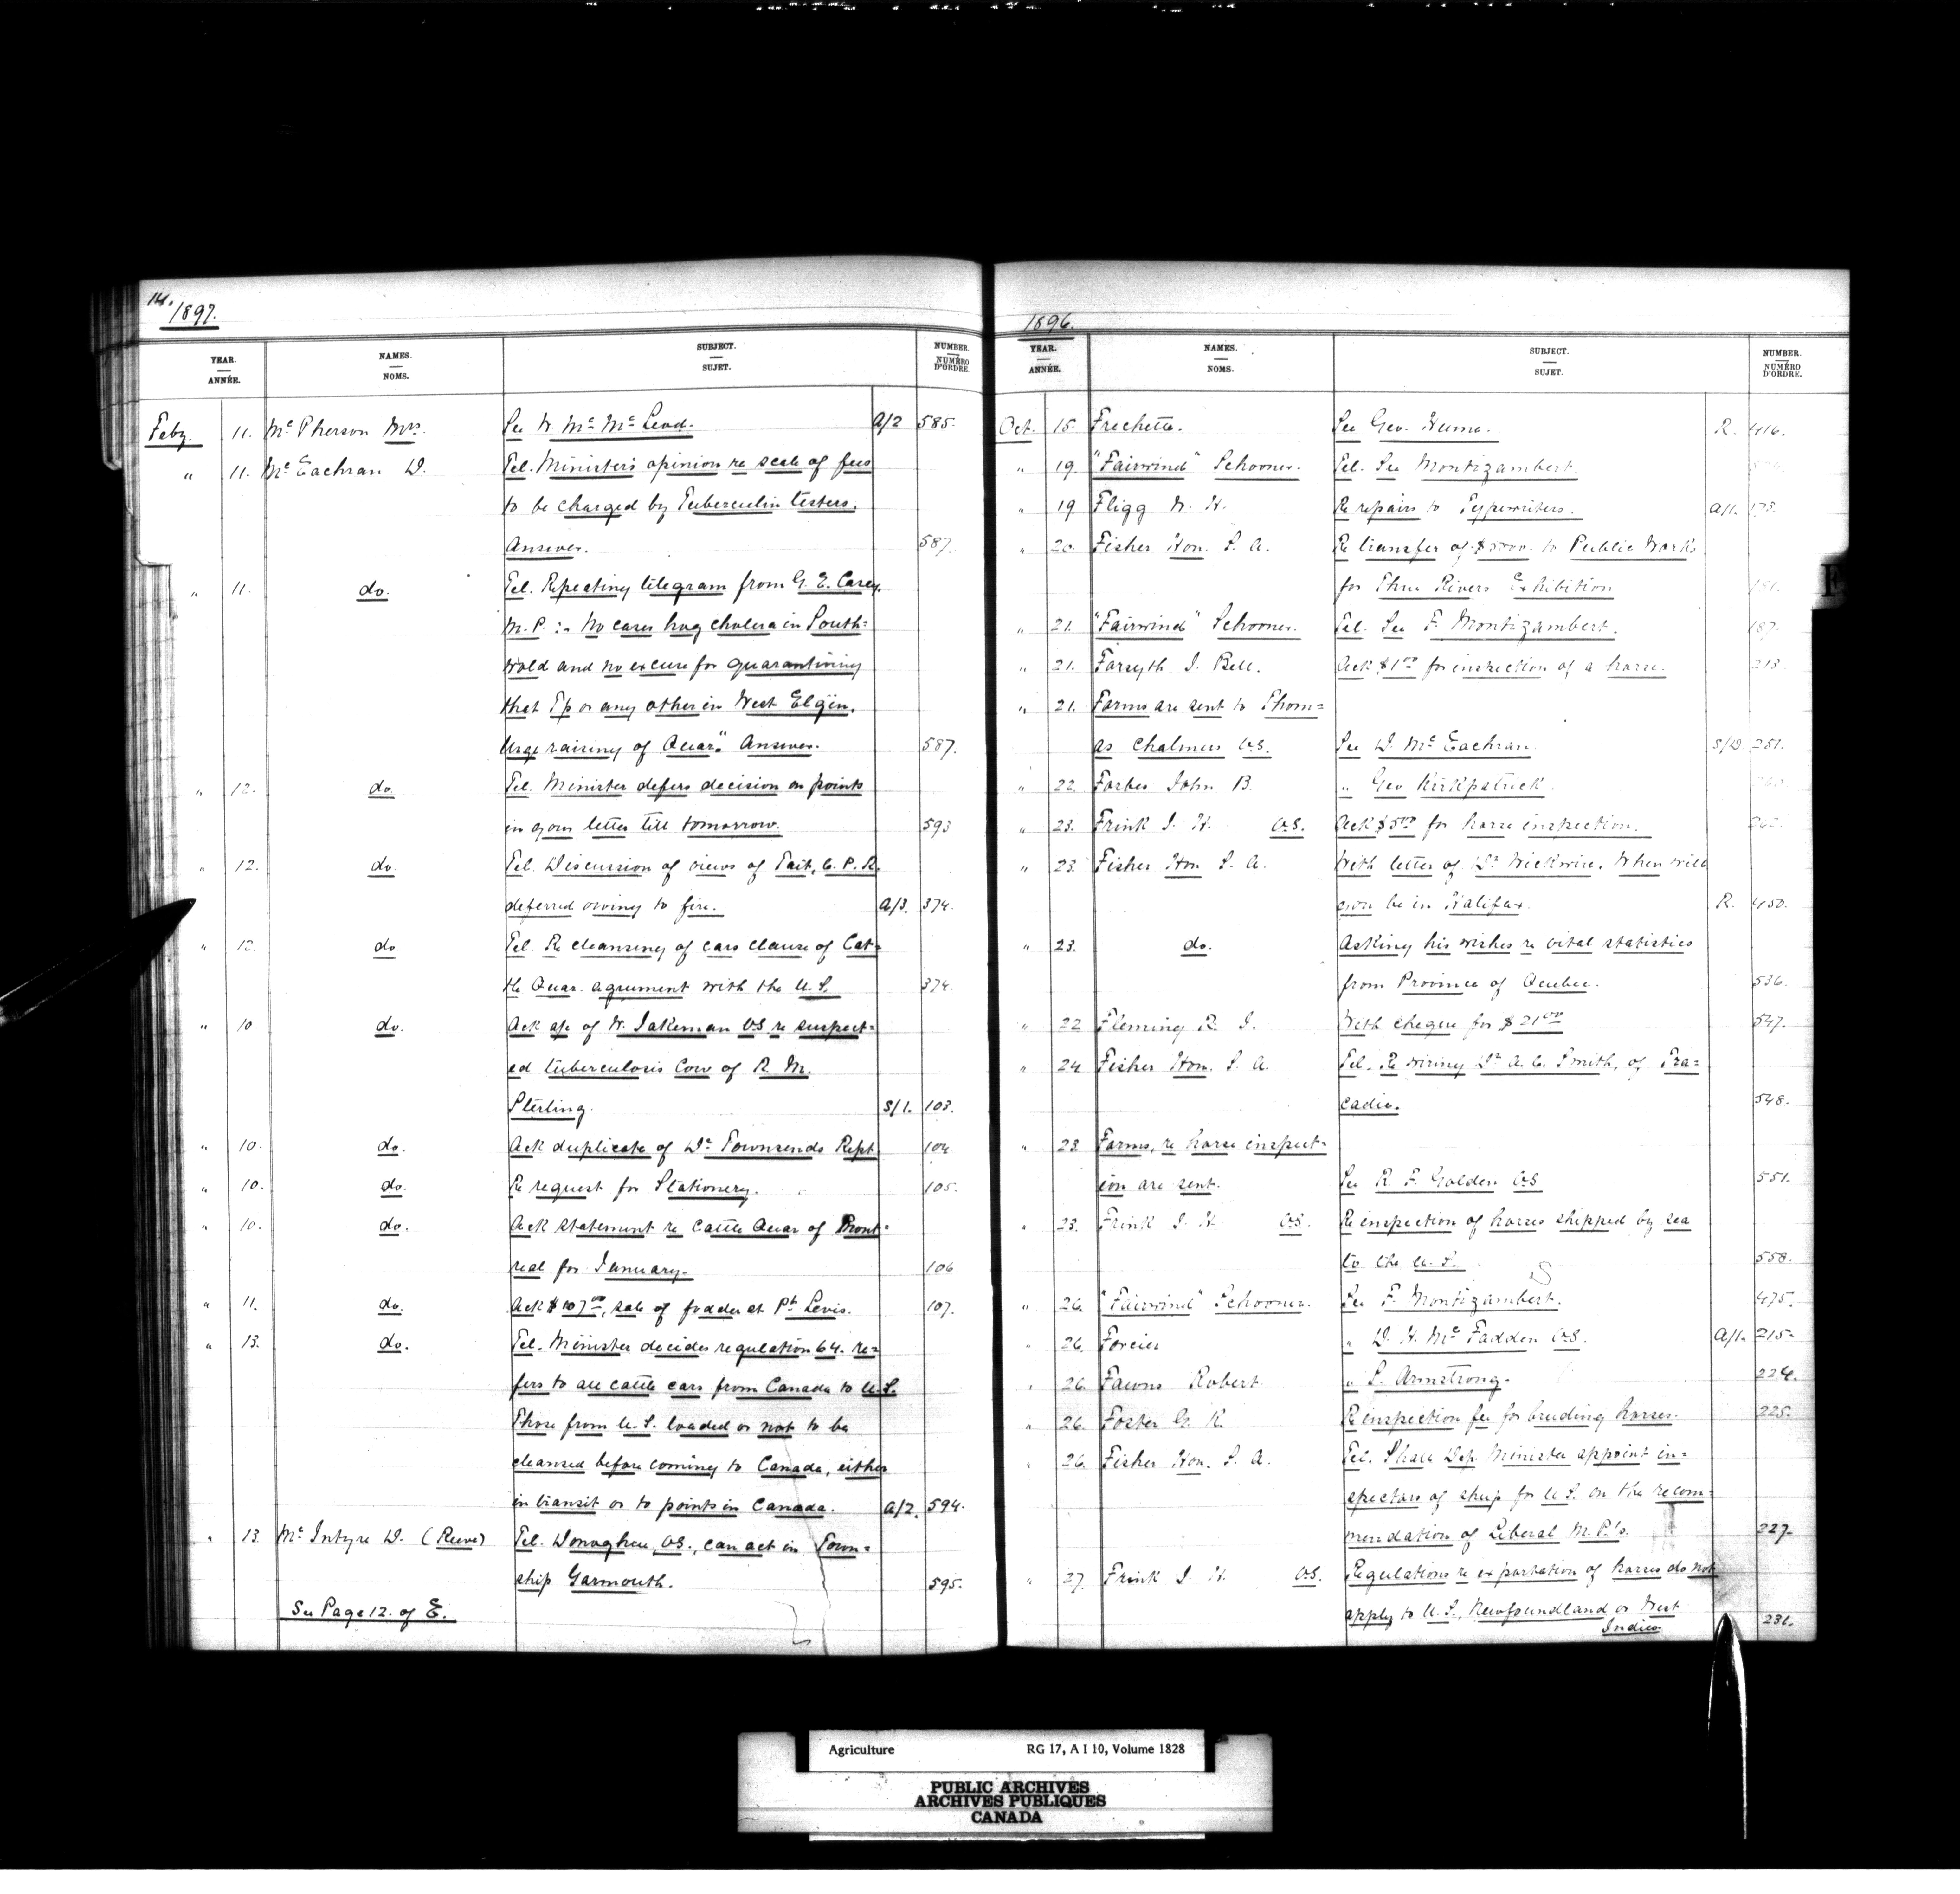 14.
1897.
YEAR. ANNÉE. NAMES. NOMS. SUBJECT. SUJET. NUMBER. NUMÉRO D'ORDRE.
Feby. 11. Mc Pherson Mrs. See W. Mc Mc Leod. A/2 585.
" 11. Mc Eachran D. Tel. Minister's opinion re scale of fees
to be charged by Tuberculin testers.
Answer. 587.
" 11. do. Tel. Repeating telegram from G. E. Casey,
M.P. :- No cases hog cholera in South=
wold and no excuse for quarantining
that Tp or any other in West Elgin.
Urge raising of Quar." Answer. 587.
" 12. do Tel. Minister defers decision on points
in your letter till tomorrow. 593
" 12. do. Tel. Discussion of views of Tait, C. P. R.
deferred owing to fire. A/3. 374.
" 12. do Tel. Re cleansing of cars clause of Cat=
tle Quar. agreement with the U.S. 374.
" 10 do. Ack a/c of W. Jakeman V.S. re suspect=
ed tuberculosis Cow of R. M.
Sterling. S/1. 103.
" 10. do. Ack duplicate of Dr Townsends Rept 104
" 10. do. Re request for Stationery. 105.
" 10. do. Ack statement re Cattle Quar of Mont=
real for January. 106
" 11. do. Ack $107.00, sale of fodder at Pt. Levis. 107.
" 13. do. Tel. Minister decides regulation 64. re=
fers to all cattle cars from Canada to U.S.
Those from U.S. loaded or not to be
cleansed before coming to Canada, either
in transit or to points in Canada. A/2. 594.
" 13 Mc Intyre D. (Reeve) Tel. Donaghue, V.S., can act in Town=
ship Yarmouth. 595.
See Page 12. of E.
1896.
YEAR. ANNÉE. NAMES. NOMS. SUBJECT. SUJET. NUMBER. NUMÉRO D'ORDRE.
Oct. 15 Frechette. See Geo. Hume. R. 416.
" 19. "Fairwind" Schooner. Tel. See Montizambert.
" 19 Fligg W. H. Re repairs to Typewriters. A/1. 173.
" 20. Fisher Hon. S. A. Re transfer of $5000. to Public Works
for Three Rivers Exhibition 181.
" 21. "Fairwind" Schooner. Tel. See F. Montizambert. 187.
" 21. Forsyth J. Bell. Ack $1.00 for inspection of a horse. 213.
" 21. Forms are sent to Thom=
as Chalmers V.S. See D. Mc Eachran. S/D 251.
" 22. Forbes John B. " Geo Kirkpatrick.
" 23. Frink J. H. V.S. Ack $5.00 for horse inspection. 262.
" 23. Fisher Hon S. A. With letter of Dr Wickwire. When will
you be in Halifax. R. 450.
" 23. do. Asking his wishes re vital statistics
from Province of Quebec. 536.
" 22 Fleming R. J. With cheque for $21.00 547.
" 24 Fisher Hon. S. A. Tel. Re wiring Dr A. C. Smith, of Tra=
cadie. 548.
" 23 Forms, re horse inspect=
ion are sent. See R. F. Golden V.S 551.
" 23. Frink J. H V.S. Re inspection of horses shipped by sea
to the U.S. 558.
" 26. "Fairwind" Schooner. See F. Montizambert. 475.
" 26. Forcier " D. H. Mc Fadden V.S. A/1. 215.
" 26. Fawns Robert " S. Armstrong. 224.
" 26. Foster G. K. Re inspection fee for breeding horses. 225.
" 26. Fisher Hon. S. A. Tel. Shall Dep. Minister appoint in=
spectors of sheep for U.S. on the recom=
mendation of Liberal M.P.'s. 227.
" 27. Frink J. H. V.S. Regulations re exportation of horses do not
apply to U.S., Newfoundland or West
Indies. 231.
F
Agriculture RG 17, A I 10, Volume 1828
PUBLIC ARCHIVES
ARCHIVES PUBLIQUES
CANADA